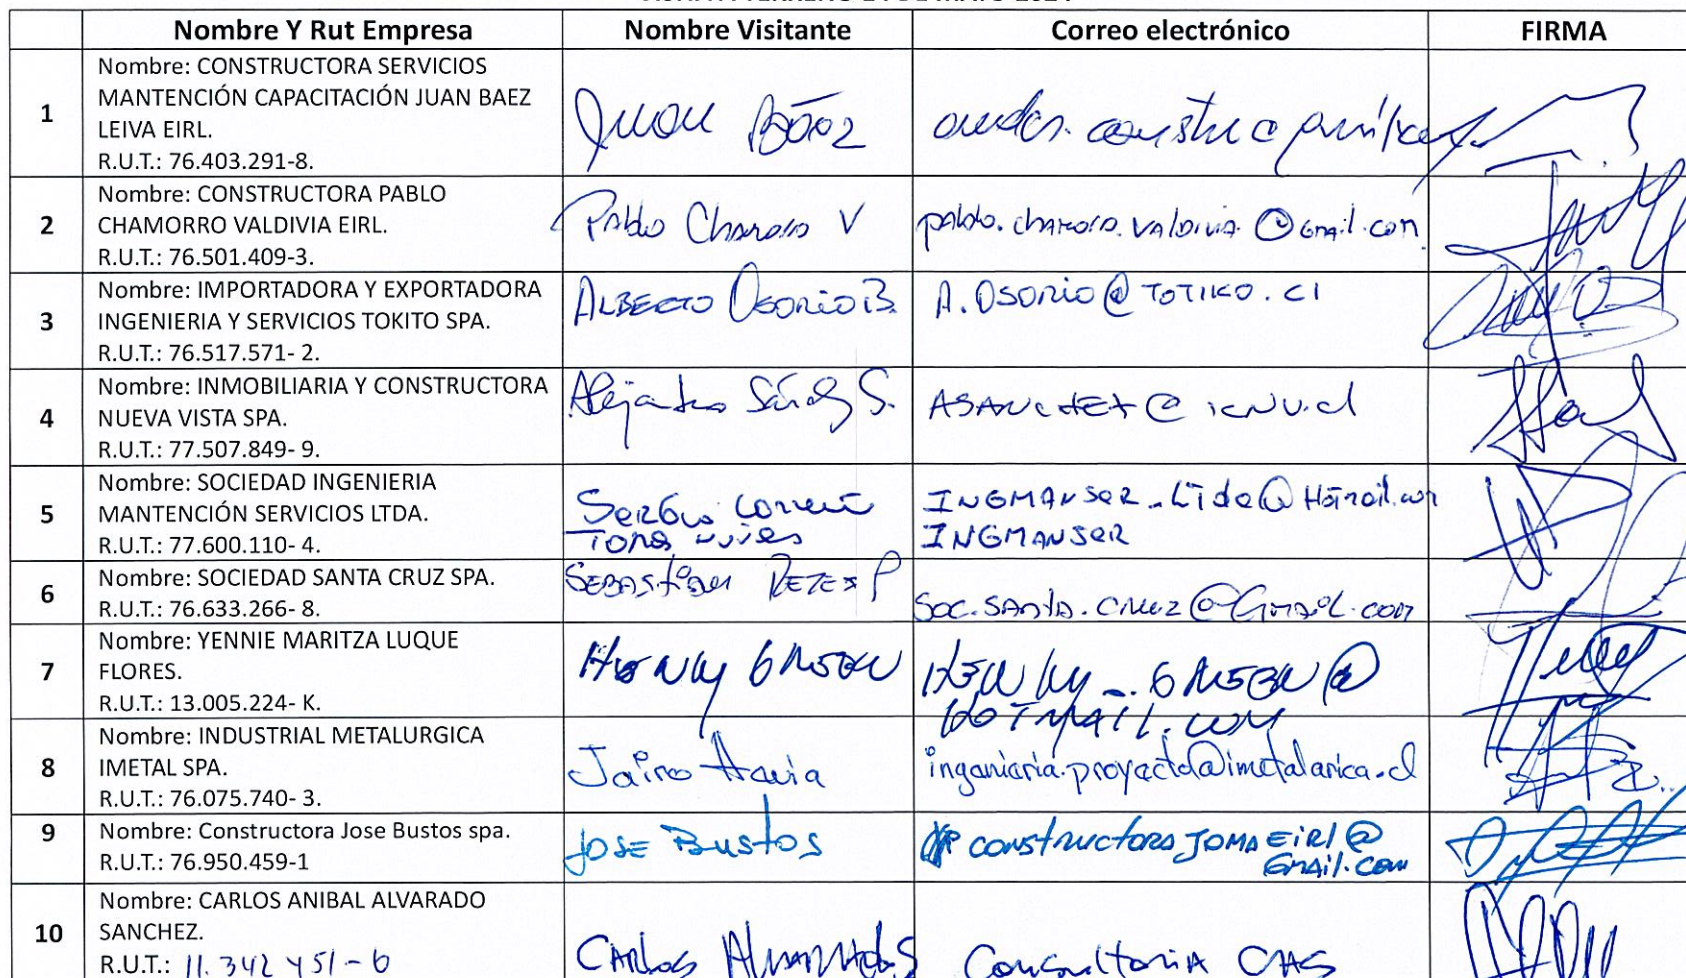 Nombre Y Rut Empresa Nombre Visitante Correo electrónico FIRMA
1
Nombre: CONSTRUCTORA SERVICIOS
MANTENCIÓN CAPACITACIÓN JUAN BAEZ
LEIVA EIRL.
R.U.T.: 76.403.291-8.
Juan Báez
2
Nombre: CONSTRUCTORA PABLO
CHAMORRO VALDIVIA EIRL.
R.U.T.: 76.501.409-3.
Pablo V
@Gmail.com
3
Nombre: IMPORTADORA Y EXPORTADORA
INGENIERIA Y SERVICIOS TOKITO SPA.
R.U.T.: 76.517.571- 2.
ALBERTO OSORIO B.
A.OSORIO@TOTIKO.Cl
4
Nombre: INMOBILIARIA Y CONSTRUCTORA
NUEVA VISTA SPA.
R.U.T.: 77.507.849- 9.
Alejandro S.
ASANCHEZ@icnv.cl
5
Nombre: SOCIEDAD INGENIERIA
MANTENCIÓN SERVICIOS LTDA.
R.U.T.: 77.600.110- 4.
Sergio
INGMANSER_Ltda@Hotmail.com
INGMANSER
6
Nombre: SOCIEDAD SANTA CRUZ SPA.
R.U.T.: 76.633.266- 8.
SEBASTIAN P
SOC.SANTA.CRUZ@Gmail.com
7
Nombre: YENNIE MARITZA LUQUE
FLORES.
R.U.T.: 13.005.224- K.
HENRY GREEN
HENRY_GREEN@
HOTMAIL.COM
8
Nombre: INDUSTRIAL METALURGICA
IMETAL SPA.
R.U.T.: 76.075.740- 3.
Jairo
ingenieria.proyecto@imetalarica.cl
9
Nombre: Constructora Jose Bustos spa.
R.U.T.: 76.950.459-1
JOSE Bustos
constructora JOMAEiRl@
Gmail.com
10
Nombre: CARLOS ANIBAL ALVARADO
SANCHEZ.
R.U.T.: 11.342451-6
Carlos Alvarado S
Consultoria CAAS